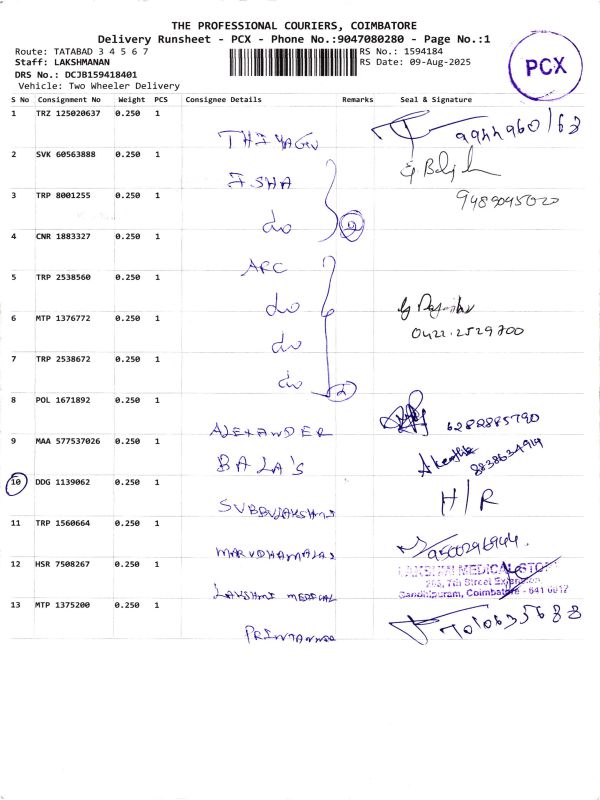 THE PROFESSIONAL COURIERS, COIMBATORE
Delivery Runsheet - PCX - Phone No.:9047080280 - Page No.:1
Route: TATABAD 3 4 5 6 7
RS No.: 1594184
Staff: LAKSHMANAN
RS Date: 09-Aug-2025
DRS No.: DCJB159418401
Vehicle: Two Wheeler Delivery
PCX
S No Consignment No Weight PCS Consignee Details Remarks Seal & Signature
1 TRZ 125020637 0.250 1
THIYAGU
2 SVK 60563888 0.250 1
ISHA
3 TRP 8001255 0.250 1
do
9489045020
4 CNR 1883327 0.250 1
ARC
5 TRP 2538560 0.250 1
do
6 MTP 1376772 0.250 1
do
0422.2529700
7 TRP 2538672 0.250 1
do
8 POL 1671892 0.250 1
ALEXANDER
6282885790
9 MAA 577537026 0.250 1
BALA'S
8838634914
10 DDG 1139062 0.250 1
SUBBULAKSHMI
H/R
11 TRP 1560664 0.250 1
MARUDHAMALAI
9500296944.
12 HSR 7508267 0.250 1
LAKSHMI MEDICAL
LAKSHMI MEDICAL STORE
7th Street Extension
Gandhipuram, Coimbatore - 641 0012
13 MTP 1375200 0.250 1
7010635688